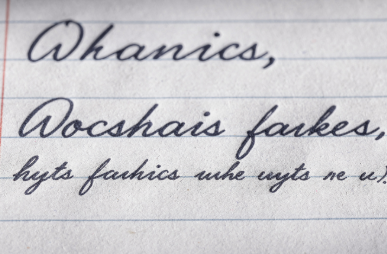 Whanics,
Wocshais farkes,
hyts farhics whe uyts re u)